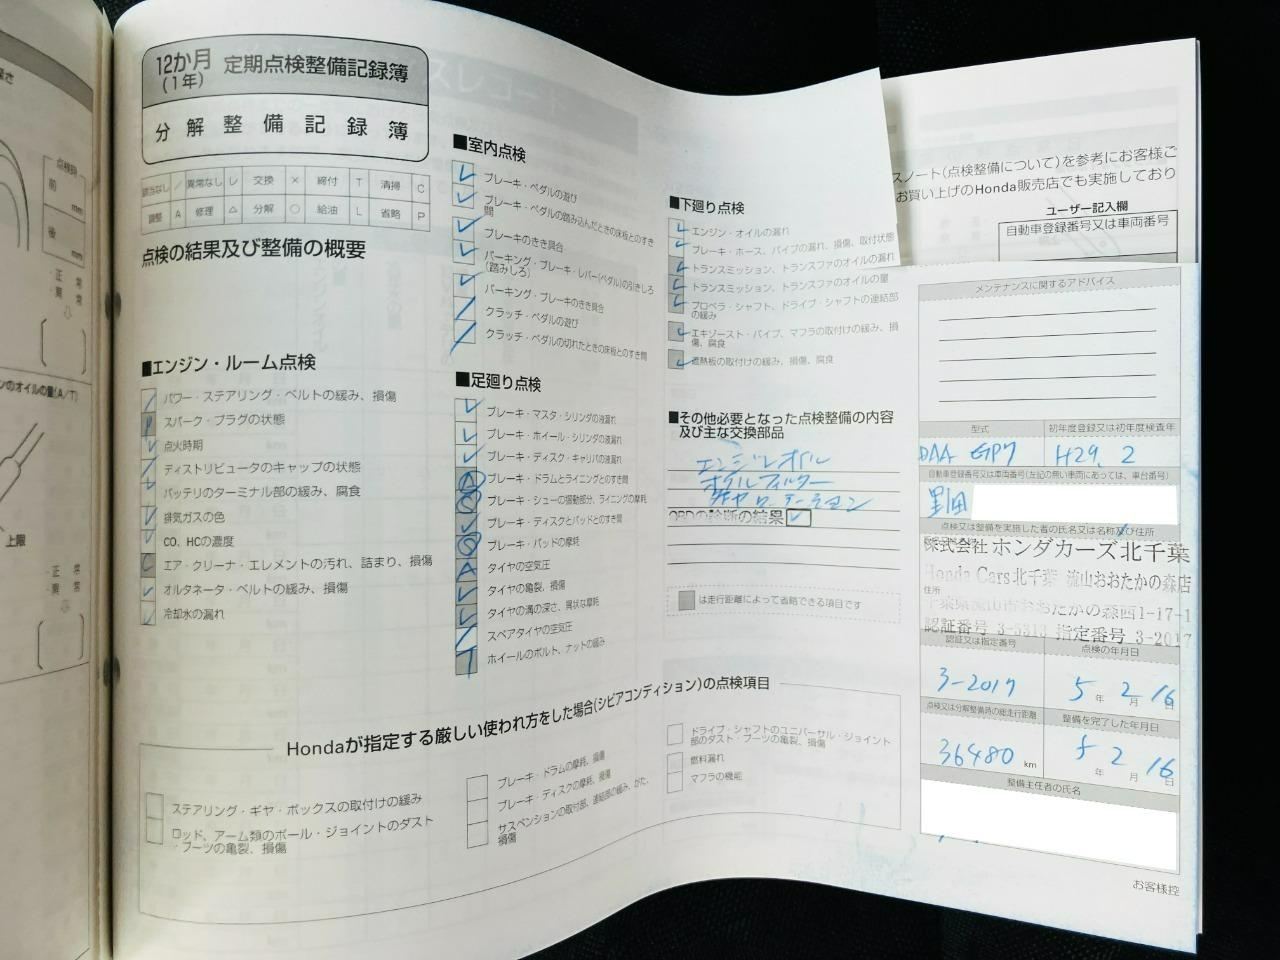 12か月
(1年)
定期点検整備記録簿
分解整備記録簿
該当なし / 異常なし レ 交換 × 締付 T 清掃 C
調整 A 修理 △ 分解 ○ 給油 L 省略 P
点検の結果及び整備の概要
■エンジン・ルーム点検
パワー・ステアリング・ベルトの緩み、損傷
スパーク・プラグの状態
点火時期
ディストリビュータのキャップの状態
バッテリのターミナル部の緩み、腐食
排気ガスの色
CO、HCの濃度
エア・クリーナ・エレメントの汚れ、詰まり、損傷
オルタネータ・ベルトの緩み、損傷
冷却水の漏れ
■室内点検
ブレーキ・ペダルの遊び
ブレーキ・ペダルの踏み込んだときの床板とのすき間
ブレーキのきき具合
パーキング・ブレーキ・レバー(ペダル)の引きしろ
(踏みしろ)
パーキング・ブレーキのきき具合
クラッチ・ペダルの遊び
クラッチ・ペダルの切れたときの床板とのすき間
■足廻り点検
ブレーキ・マスタ・シリンダの液漏れ
ブレーキ・ホイール・シリンダの液漏れ
ブレーキ・ディスク・キャリパの液漏れ
ブレーキ・ドラムとライニングとのすき間
ブレーキ・シューの摺動部分、ライニングの摩耗
ブレーキ・ディスクとパッドとのすき間
ブレーキ・パッドの摩耗
タイヤの空気圧
タイヤの亀裂、損傷
タイヤの溝の深さ、異状な摩耗
スペアタイヤの空気圧
ホイールのボルト、ナットの緩み
■下廻り点検
エンジン・オイルの漏れ
ブレーキ・ホース、パイプの漏れ、損傷、取付状態
トランスミッション、トランスファのオイルの漏れ
トランスミッション、トランスファのオイルの量
プロペラ・シャフト、ドライブ・シャフトの連結部
の緩み
エキゾースト・パイプ、マフラの取付けの緩み、損
傷、腐食
遮熱板の取付けの緩み、損傷、腐食
■その他必要となった点検整備の内容
及び主な交換部品
エンジンオイル
オイルフィルター
タイヤローテーション
OBDの診断の結果
は走行距離によって省略できる項目です
Hondaが指定する厳しい使われ方をした場合(シビアコンディション)の点検項目
ステアリング・ギヤ・ボックスの取付けの緩み
ロッド、アーム類のボール・ジョイントのダスト
・ブーツの亀裂、損傷
ブレーキ・ドラムの摩耗、損傷
ブレーキ・ディスクの摩耗、損傷
サスペンションの取付部、連結部の緩み、がた、
損傷
ドライブ・シャフトのユニバーサル・ジョイント
部のダスト・ブーツの亀裂、損傷
燃料漏れ
マフラの機能
スノート(点検整備について)を参考にお客様ご
お買い上げのHonda販売店でも実施しており
ユーザー記入欄
自動車登録番号又は車両番号
メンテナンスに関するアドバイス
型式 初年度登録又は初年度検査年
DAA GP7 H29. 2
自動車登録番号又は車両番号(左記の無い車両にあっては、車台番号)
野田
点検又は整備を実施した者の氏名又は名称及び住所
株式会社ホンダカーズ北千葉
Honda Cars北千葉 流山おおたかの森店
住所
千葉県流山市おおたかの森西1-17-1
認証番号 3-5313 指定番号 3-2017
認証又は指定番号 点検の年月日
3-2017 5年 2月 16日
点検又は分解整備時の総走行距離 整備を完了した年月日
36480 km 5年 2月 16日
整備主任者の氏名
お客様控
点検時
前 mm
後 mm
・正常
・異常
ンのオイルの量(A/T)
上限
・正常
・異常